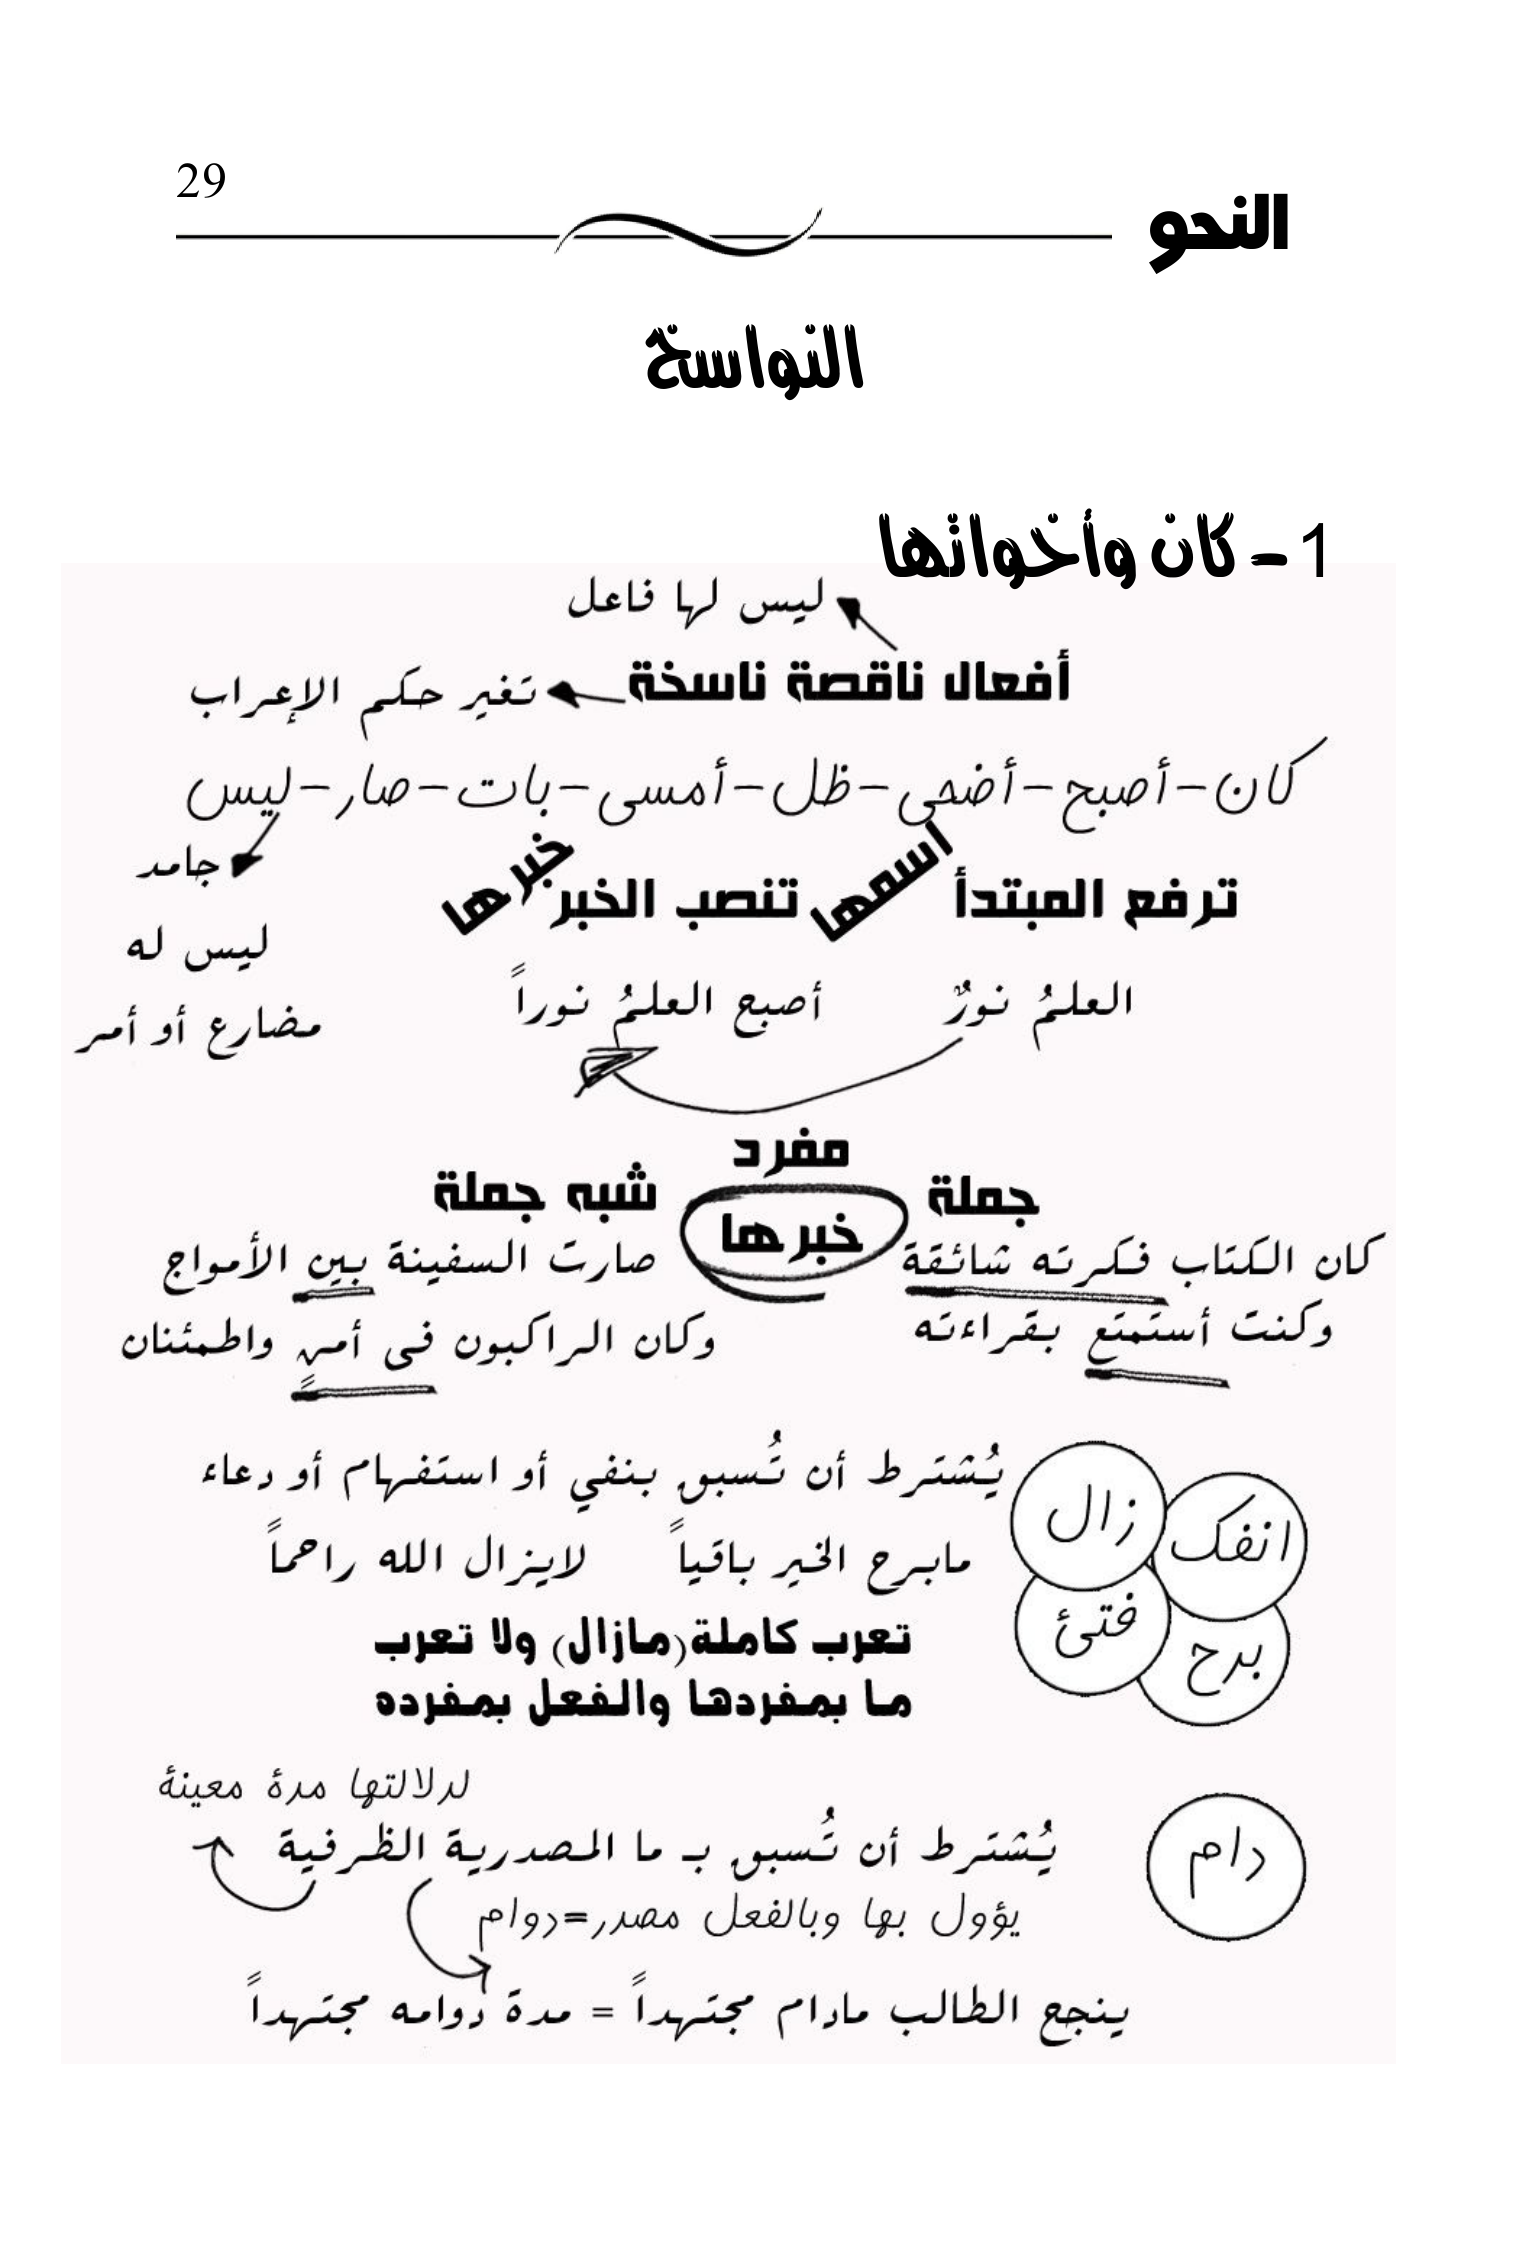 29
النحو
النواسخ
1 – كان وأخواتها
ليس لها فاعل
أفعال ناقصة ناسخة
تغير حكم الإعراب
كان – أصبح – أضحى – ظل – أمسى – بات – صار – ليس
جامد
ليس له
مضارع أو أمر
ترفع المبتدأ اسمها تنصب الخبر خبرها
العلمُ نورٌ أصبح العلمُ نوراً
مفرد
جملة
شبه جملة
خبرها
كان الكتاب فكرته شائقة
وكنت أستمتع بقراءته
صارت السفينة بين الأمواج
وكان الراكبون فى أمنٍ واطمئنان
زال
انفك
فتئ
برح
يُشترط أن تُسبق بنفي أو استفهام أو دعاء
مابرح الخير باقياً لايزال الله راحماً
تعرب كاملة (مازال) ولا تعرب
ما بمفردها والفعل بمفرده
لدلالتها مدة معينة
دام
يُشترط أن تُسبق بـ ما المصدرية الظرفية
يؤول بها وبالفعل مصدر=دوام
ينجح الطالب مادام مجتهداً = مدة دوامه مجتهداً